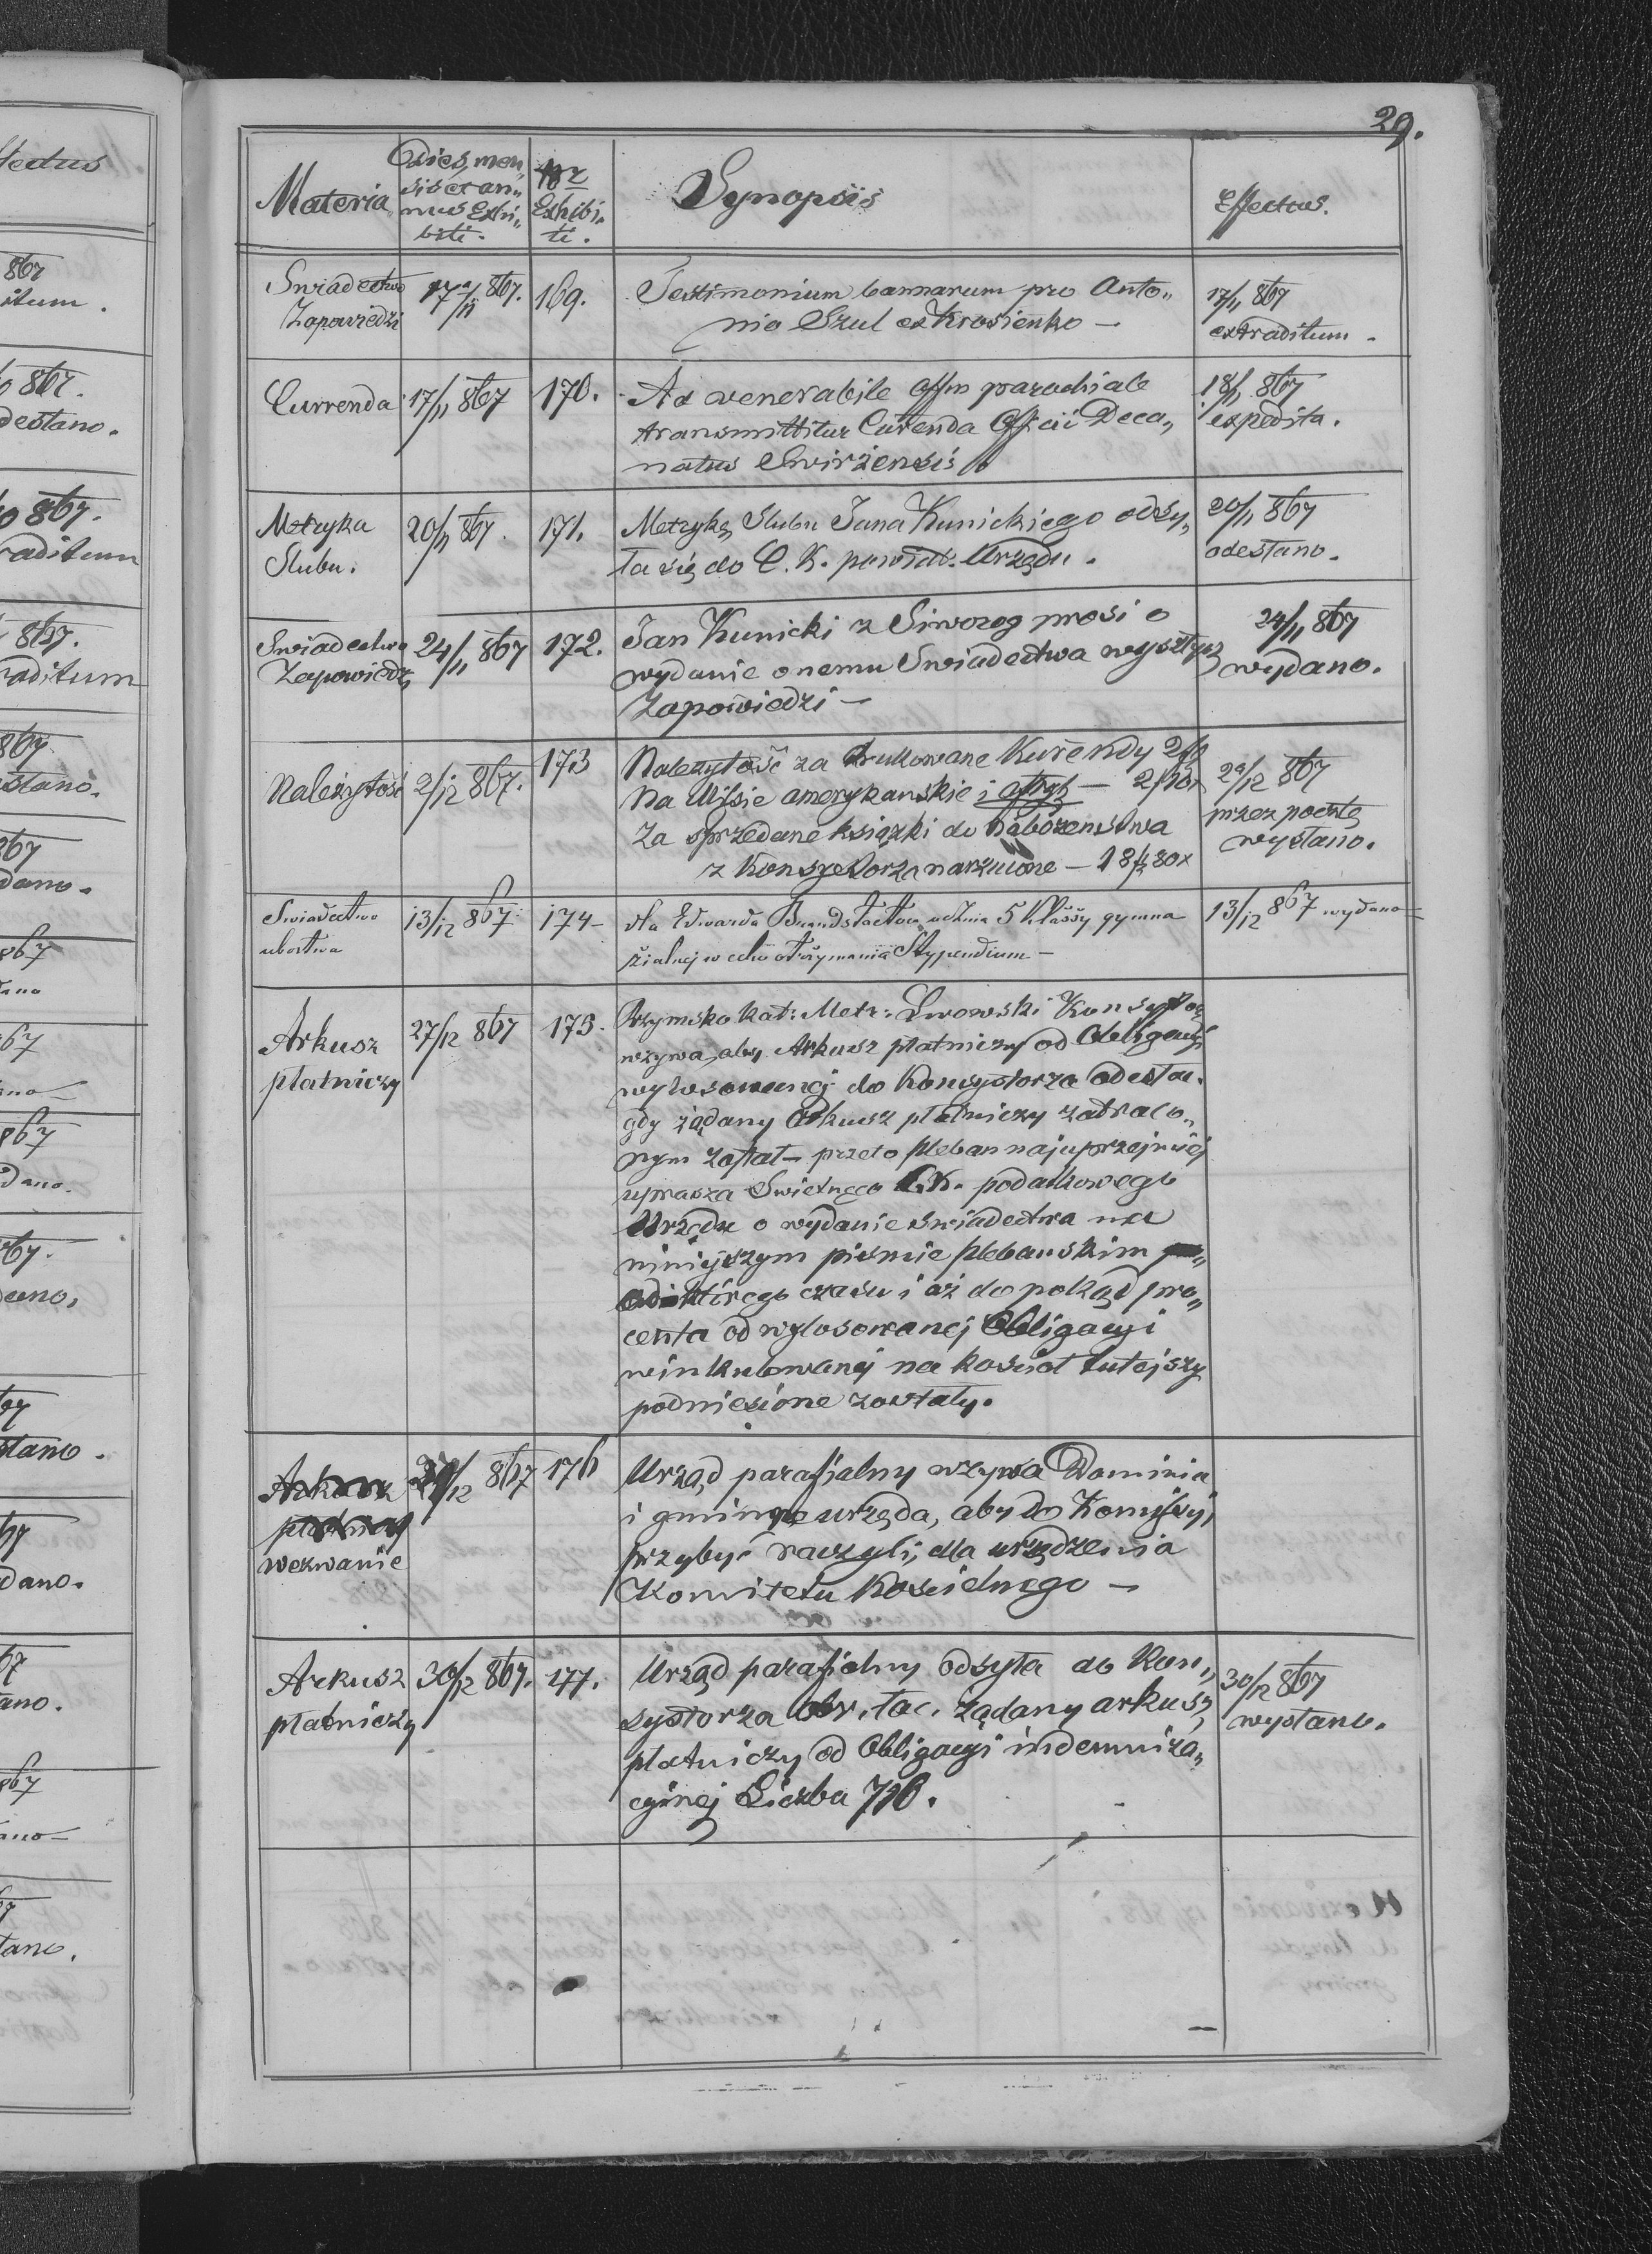 29.
Materia
Dies, men„
sis et an„
nus Exhi„
biti.
Nr
Exhibi„
ti.
Synopsis
Effectus.
Swiadectwo
Zapowiedzi
17/11 867.
169.
Testimonium bannorum pro Anto„
nio Szul ex Krosienko —
17/11 867
extraditum.
Currenda
17/11 867
170.
Ad venerabile Offm parochiale
transmittitur Curenda Officii Deca„
natus Swirzensis
18/11 867
expedita.
Metryka
Slubu.
20/11 867.
171.
Metrykę Slubu Jana Kunickiego odsy„
ła się do C. K. powiat. Urzędu.
20/11 867
odesłano.
Swiadectwo
Zapowiedzi
24/11 867
172.
Jan Kunicki z Siworog prosi o
wydanie onemu Swiadectwa wyszłych
Zapowiedzi —
24/11 867
wydano.
Należytość
2/12 867.
173
Należytość za drukowane Kurendy
Na Missie amerykanskie i
za sprzedane książki do nabożeństwa
z Konsystorza narzucone — 18 f 80 x
2/12 867
przez pocztę
wysłano.
Swiadectwo
ubostwa
13/12 867
174 —
dla Edwarda Brandstaettera ucznia 5 Klassy gymna
zialnej w celu otrzymania Stypendium —
13/12 867 wydano —
Arkusz
płatniczy
27/12 867
175.
Rzymsko kat: Metr: Lwowski Konsystorz
wzywa, aby Arkusz płatniczy od Obligacyi
wylosowanej do Konsystorza odesłać.
gdy żądany Arkusz płatniczy zatraco„
nym został — przeto pleban najuprzejmiej
uprasza Swietnego C. K. podatkowego
Urzędu o wydanie swiadectwa na
niniejszym pismie plebańskim
od którego czasu i aż do pokąd pro„
centa od wylosowanej Obligacyi
winkulowanej na kościoł tutejszy
podniesione zostały.
Arkusz
płatniczy
wezwanie
27/12 867
176
Urząd parafialny wzywa Dominia
i gminne urzęda, aby do Komissyi
przybyć raczyli, dla urządzenia
Komitetu Koscielnego —
Arkusz
płatniczy
30/12 867.
177.
Urząd parafialny odsyła do Kon„
systorza obr. łac. żądany arkusz
płatniczy od Obligacyi indemniza„
cyjnej Liczba 710.
30/12 867
wysłano.